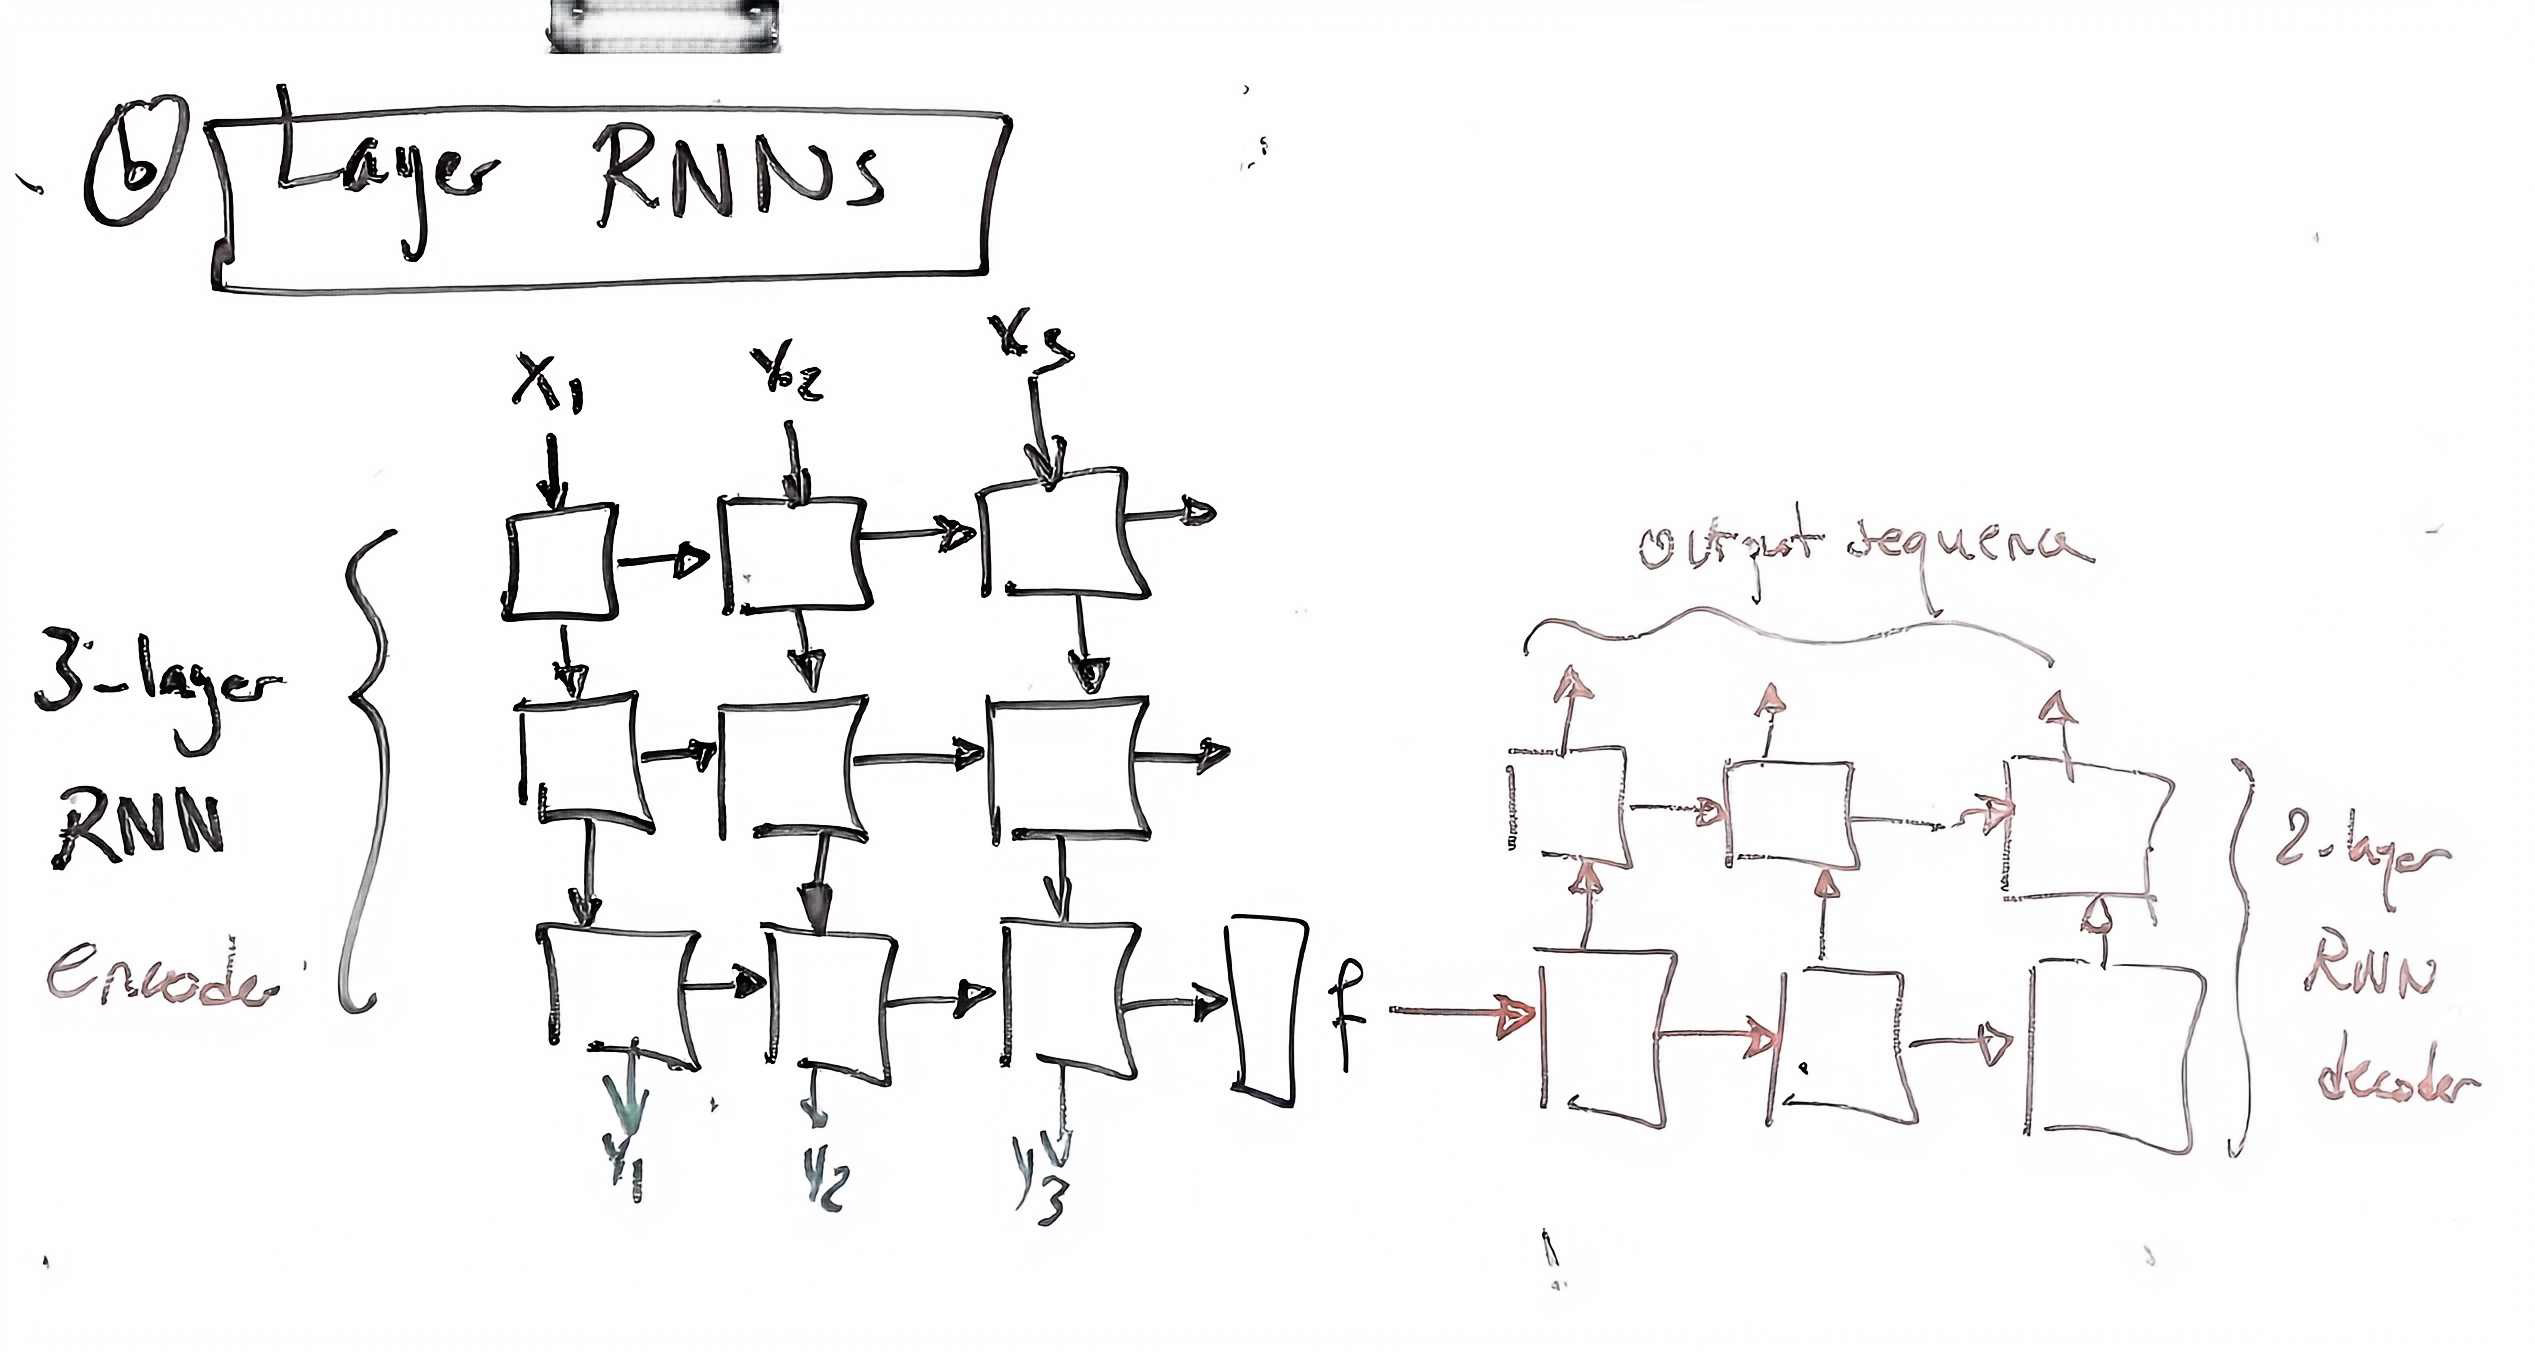 6 Layer RNNs
X1 X2 X3
3-layer
RNN
encoder
f
y1 y2 y3
output sequence
2-layer
RNN
decoder